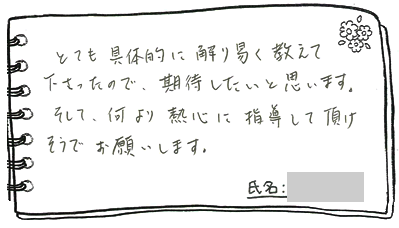 とても具体的に解り易く教えて
下さったので、期待したいと思います。
そして、何より熱心に指導して頂け
そうでお願いします。
氏名: